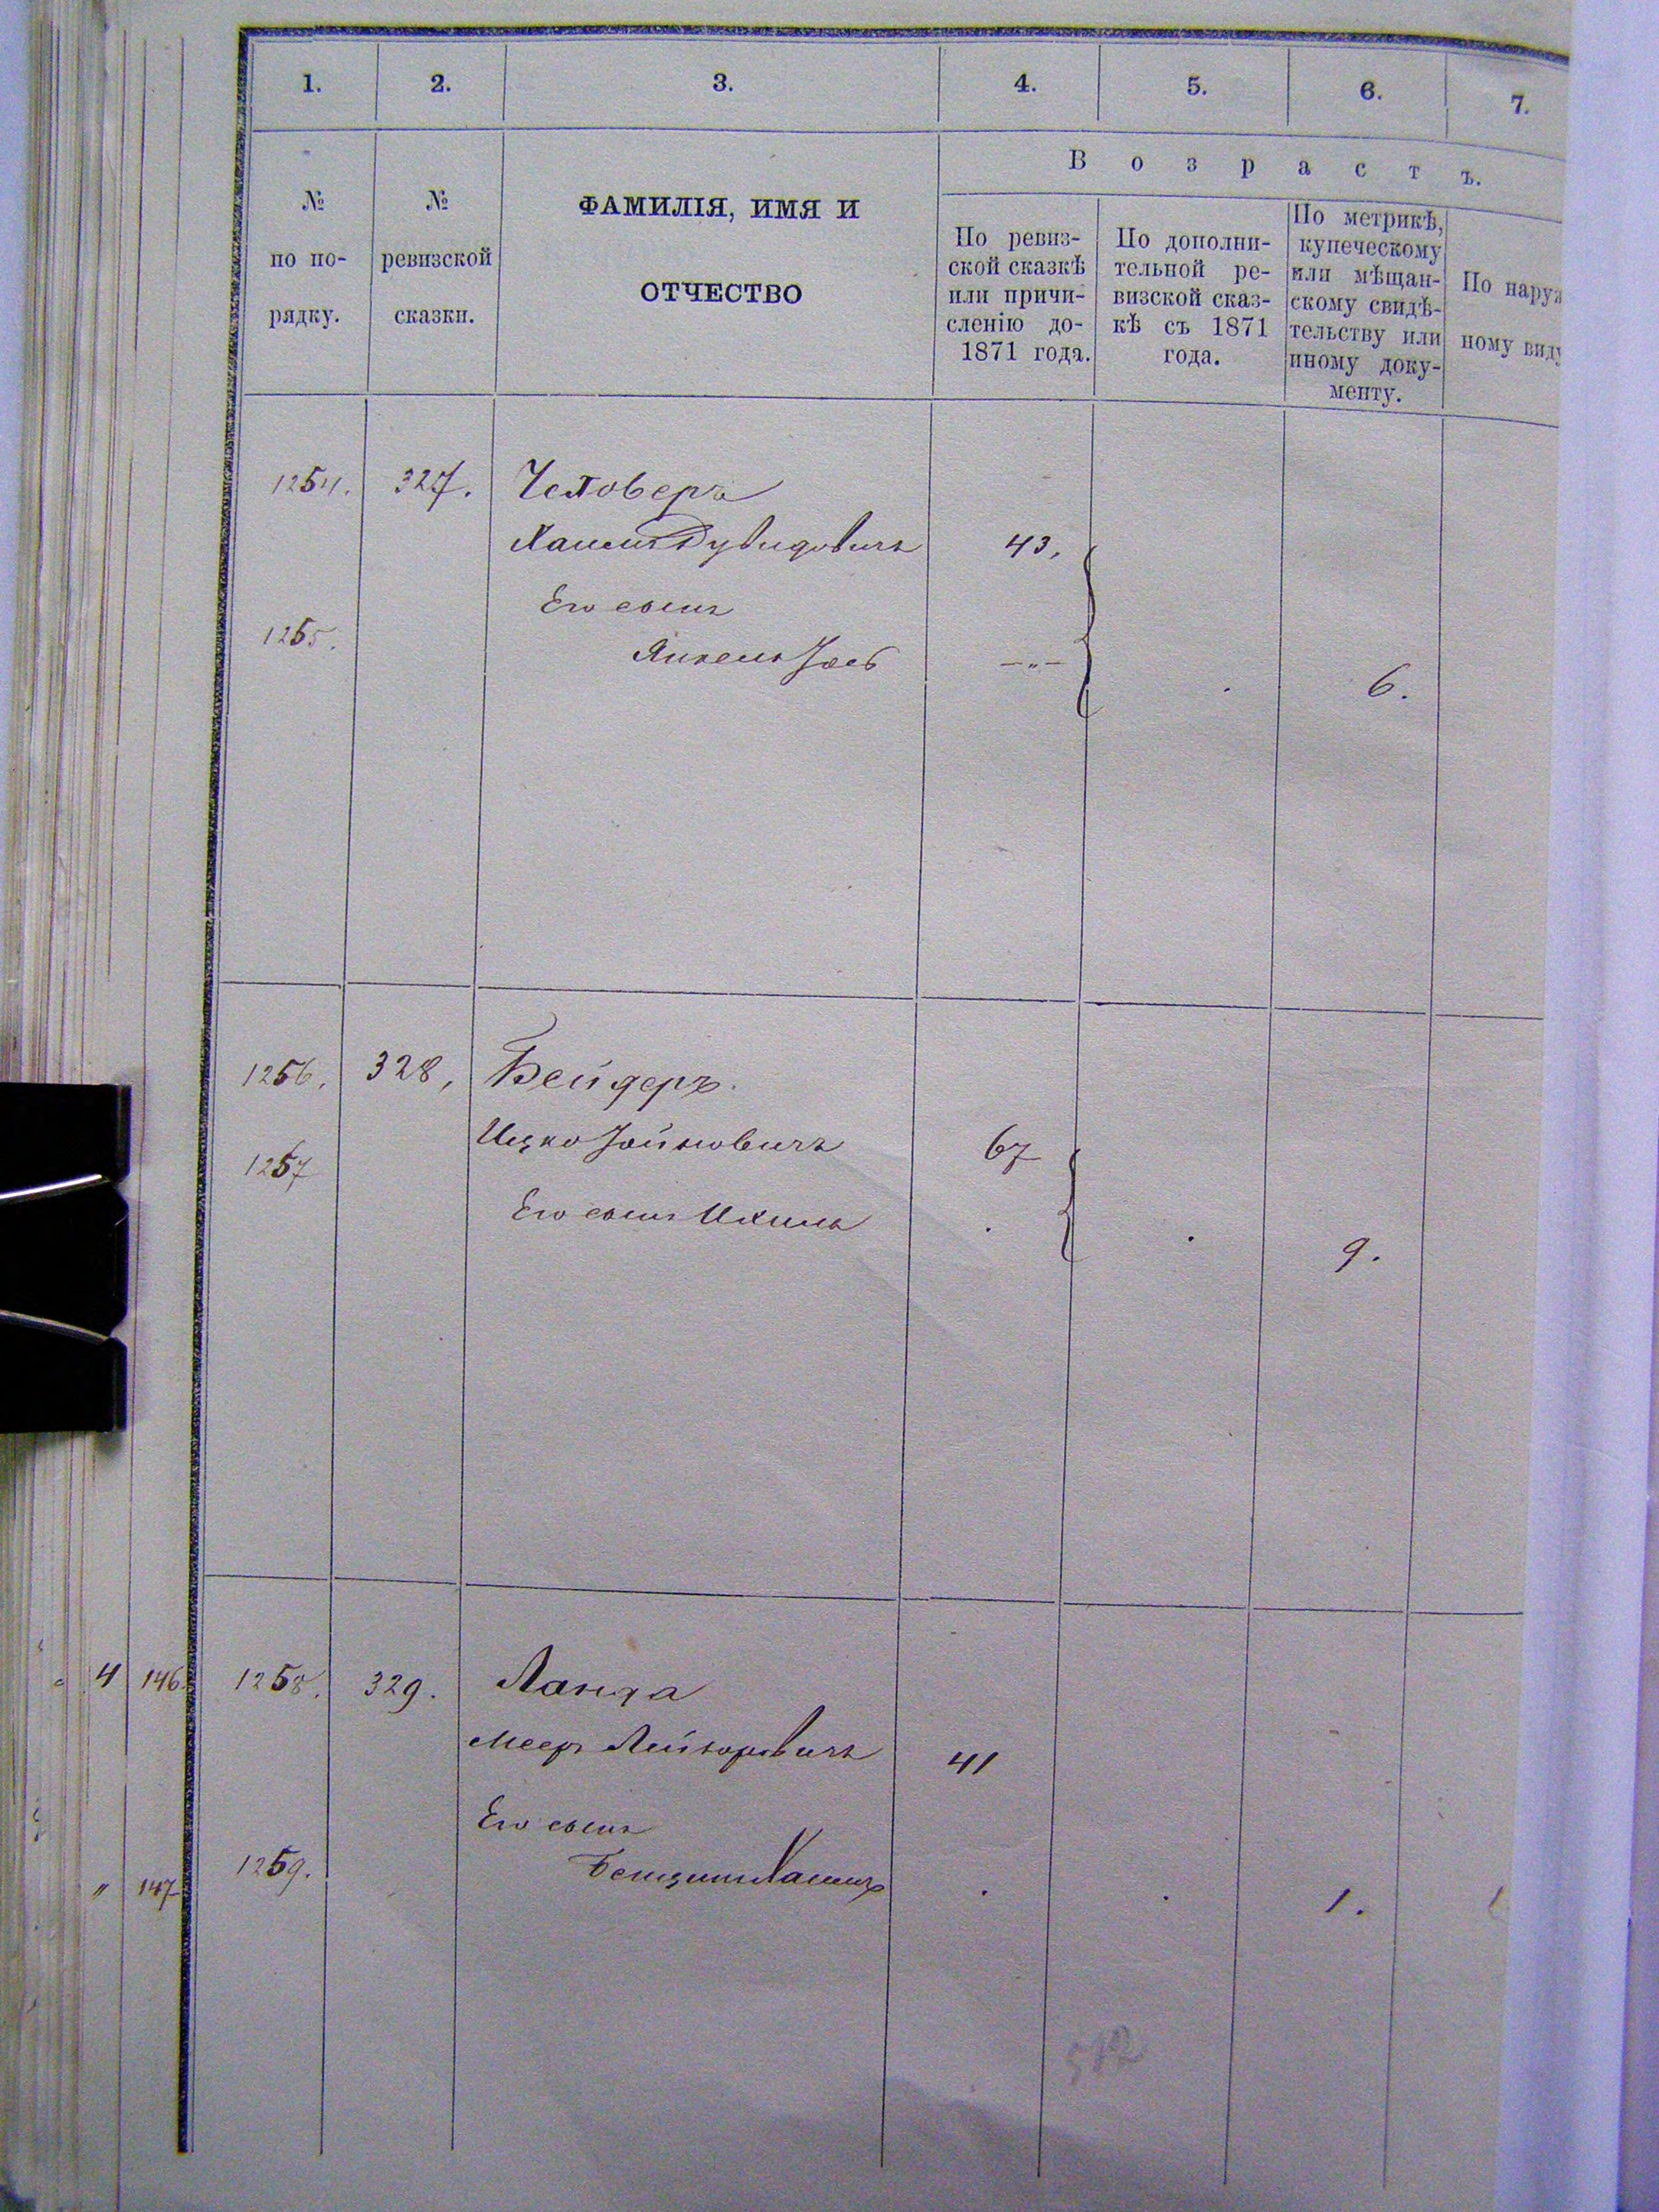 1. 2. 3. 4. 5. 6. 7.
№ по по-рядку.
№ ревизской сказки.
ФАМИЛІЯ, ИМЯ И
ОТЧЕСТВО
Возрастъ.
По ревиз-
ской сказкѣ
или причи-
сленію до-
1871 года.
По дополни-
тельной ре-
визской сказ-
кѣ съ 1871
года.
По метрикѣ,
купеческому
или мѣщан-
скому свидѣ-
тельству или
иному доку-
менту.
По наруж
ному виду
1254. 327. Человеръ
Хаимъ Дувидовичъ 43,
Его сынъ
1255. Янкель Іось —„— . 6.
1256. 328, Бейдеръ.
Ицко Іойновичъ 67
1257
Его сынъ Ихиль . . 9.
4 146. 1258. 329. Ланда
Мееръ Лейзоровичъ 41
Его сынъ
„ 147 1259. Бенционъ Хаимъ . . 1.
512